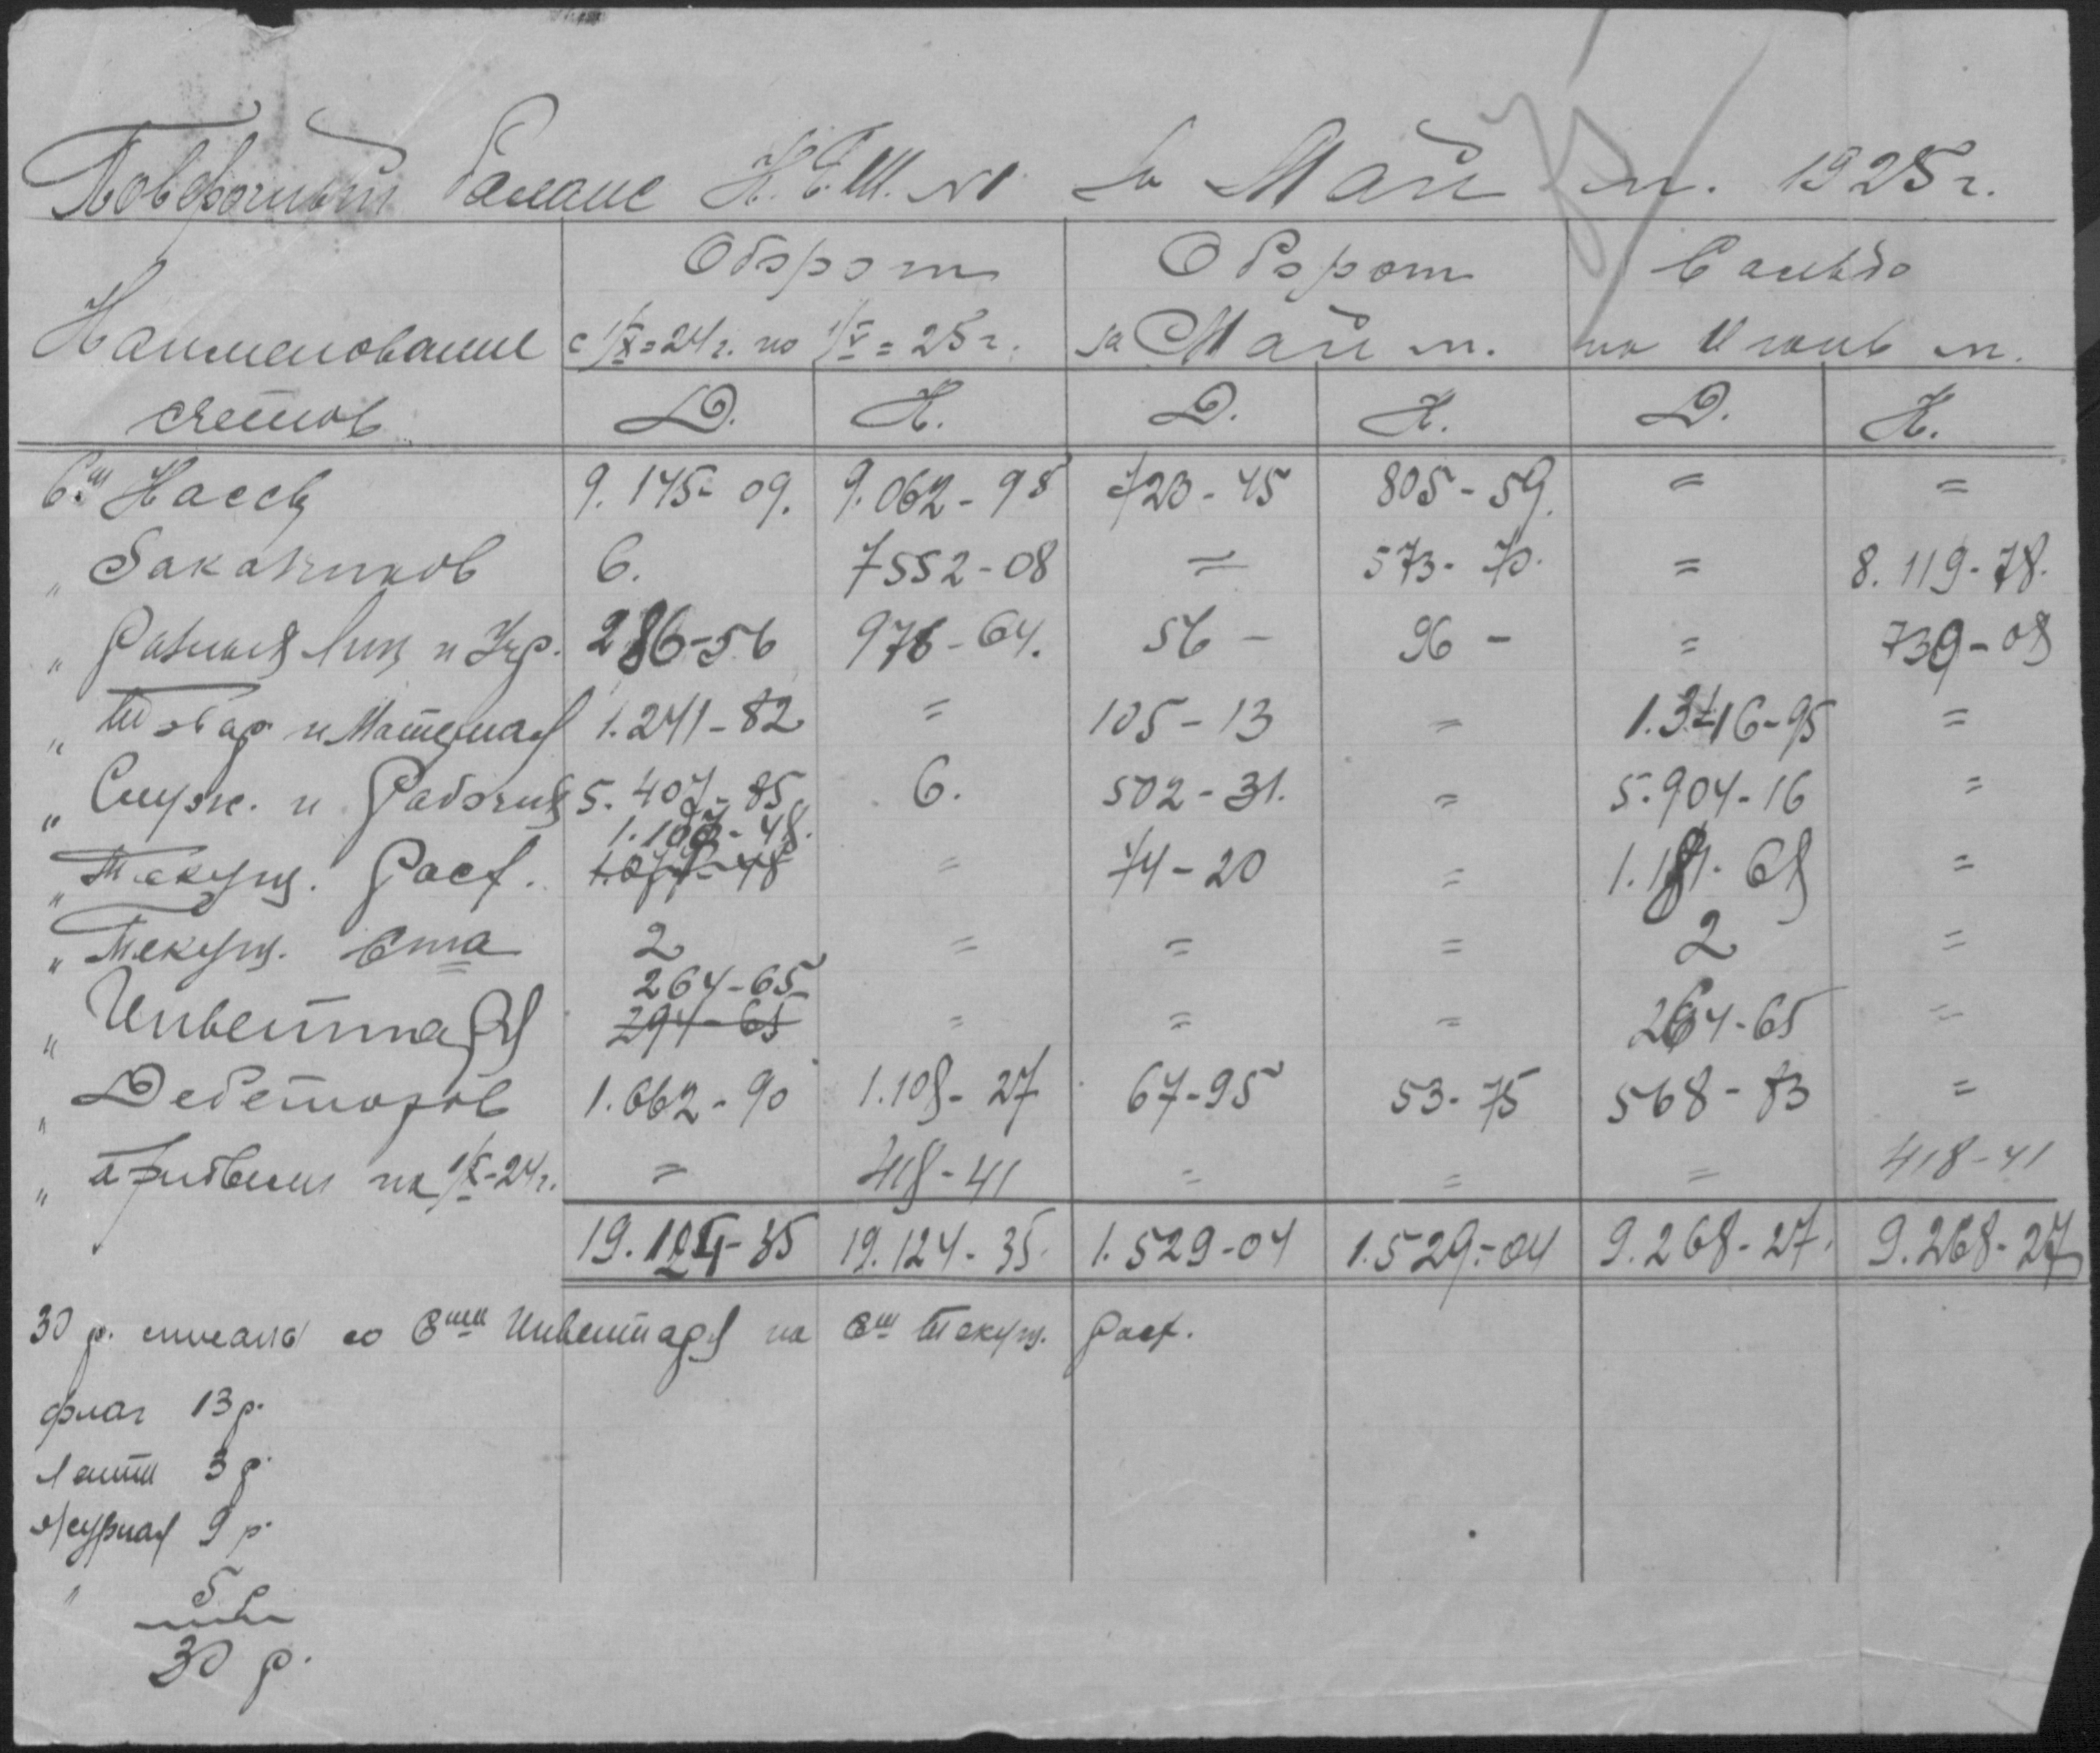 Поверочный баланс К.Е.Ш. №1 за Май м. 1925 г.
Наименование счетов
Оборот с 1/X=24 г. по 1/V=25 г.
Оборот за Май м.
Сальдо на Июнь м.
Д. К. Д. К. Д. К.
Сч Кассы 9.145-09. 9.062-95 723-45 805-59. = =
" Заказчиков 6. 7552-08 = 573-70. = 8.119-78.
" Разных лиц и Учр. 286-56 978-64. 56 - 96 - = 739-08
" Товар. и Материал 1.241-82 = 105-13 = 1.346-95 =
" Служ. и Рабочих 5.407-85 6. 502-31. = 5.904-16 =
1.107-48.
" Текущ. Расх. 1.077-48 = 74-20 = 1.181-68 =
" Текущ. Счта 2 = = = 2 =
264-65
" Инвентаря 294-65 = = = 264-65 =
" Дебеторов 1.662-90 1.108-27 67-95 53-75 568-83 =
" прибыли на 1/X-24 г. = 418-41 = = = 418-41
19.124-35 19.124-35. 1.529-04 1.529-04 9.268-27. 9.268-27
30 р. списано со Счта Инвентаря на Сч Текущ. Расх.
флаг 13 р.
Ленты 3 р.
Журнал 9 р.
" 5 р
30 р.